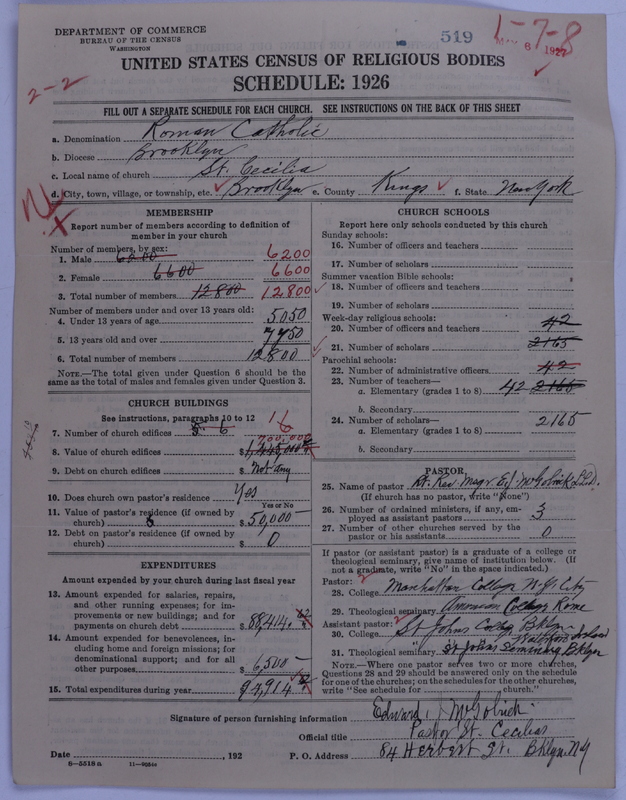 DEPARTMENT OF COMMERCE
BUREAU OF THE CENSUS
WASHINGTON
519
1-7-8
MAY 6 1927
2-2
UNITED STATES CENSUS OF RELIGIOUS BODIES
SCHEDULE: 1926
FILL OUT A SEPARATE SCHEDULE FOR EACH CHURCH. SEE INSTRUCTIONS ON THE BACK OF THIS SHEET
a. Denomination Roman Catholic
b. Diocese Brooklyn
c. Local name of church St. Cecilia
d. City, town, village, or township, etc. Brooklyn e. County Kings f. State New York
MEMBERSHIP
Report number of members according to definition of member in your church
Number of members, by sex:
1. Male 6200 6200
2. Female 6600 6600
3. Total number of members 12800 12800
Number of members under and over 13 years old:
4. Under 13 years of age 5050
5. 13 years old and over 7750
6. Total number of members 12800
NOTE.—The total given under Question 6 should be the same as the total of males and females given under Question 3.
CHURCH BUILDINGS
See instructions, paragraphs 10 to 12
7. Number of church edifices 5 6 1
8. Value of church edifices $ 700,000
9. Debt on church edifices $ Not any
10. Does church own pastor's residence Yes
Yes or No
11. Value of pastor's residence (if owned by church) $ 50,000
12. Debt on pastor's residence (if owned by church) $ 0
EXPENDITURES
Amount expended by your church during last fiscal year
13. Amount expended for salaries, repairs, and other running expenses; for improvements or new buildings; and for payments on church debt $ 88,414.
14. Amount expended for benevolences, including home and foreign missions; for denominational support; and for all other purposes $ 6,500
15. Total expenditures during year 94,914
CHURCH SCHOOLS
Report here only schools conducted by this church
Sunday schools:
16. Number of officers and teachers
17. Number of scholars
Summer vacation Bible schools:
18. Number of officers and teachers
19. Number of scholars
Week-day religious schools:
20. Number of officers and teachers 42
21. Number of scholars 2165
Parochial schools:
22. Number of administrative officers 42
23. Number of teachers—
a. Elementary (grades 1 to 8) 42 2165
b. Secondary
24. Number of scholars—
a. Elementary (grades 1 to 8) 2165
b. Secondary
PASTOR
25. Name of pastor Rt. Rev. Msgr. Ed. McGolrick L.L.D.
(If church has no pastor, write "None")
26. Number of ordained ministers, if any, employed as assistant pastors 3
27. Number of other churches served by the pastor or his assistants 0
If pastor (or assistant pastor) is a graduate of a college or theological seminary, give name of institution below. (If not a graduate, write "No" in the space indicated.)
Pastor:
28. College Manhattan College N.Y. City
29. Theological seminary American College Rome
Assistant pastor:
30. College St Johns College Bklyn
31. Theological seminary St Johns Seminary Bklyn
NOTE.—Where one pastor serves two or more churches, Questions 28 and 29 should be answered only on the schedule for one of the churches; on the schedules for the other churches, write "See schedule for church."
Signature of person furnishing information Edward J McGolrick
Official title Pastor St. Cecilias
Date , 192 P. O. Address 84 Herbert St. Bklyn. N.Y.
8—5518 a 11—9084a